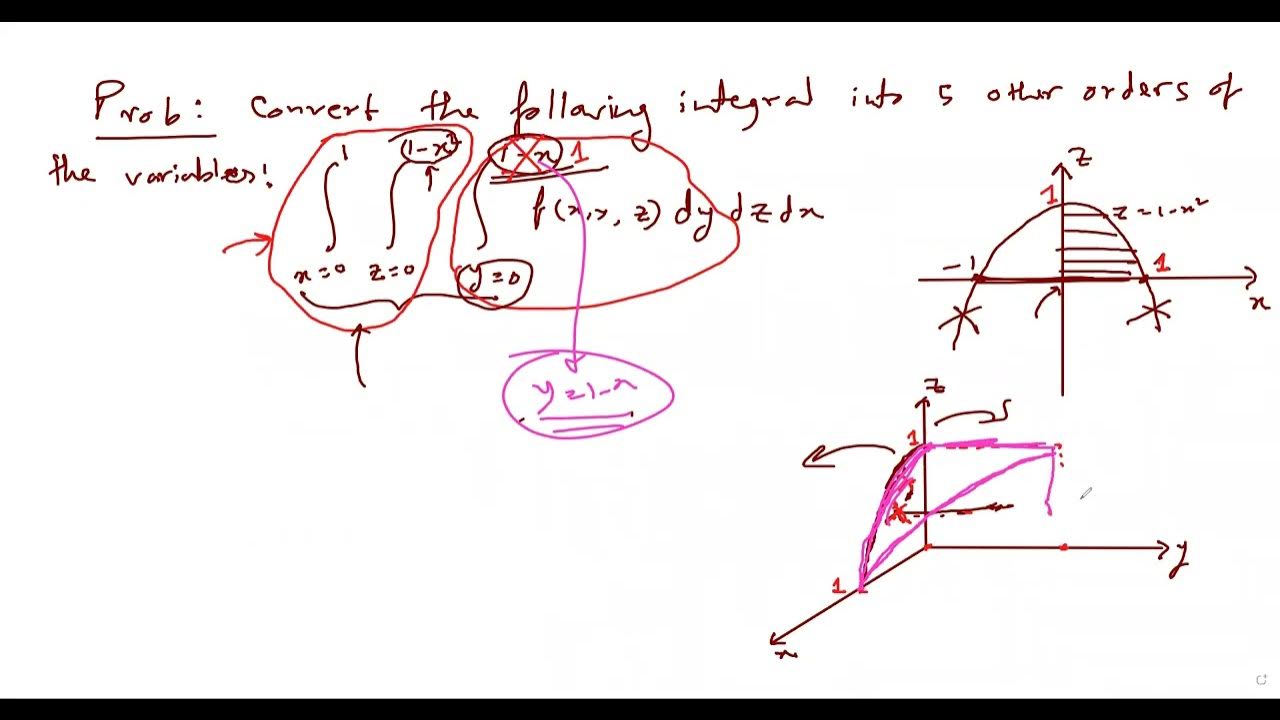 Prob: Convert the following integral into 5 other orders of
the variables:
1 1-x² 1-x 1
∫ ∫ ∫ f(x,y,z) dy dz dx
x=0 z=0 y=0
y=1-x
z
1
z=1-x²
-1 1
x
z
1
y
1
x